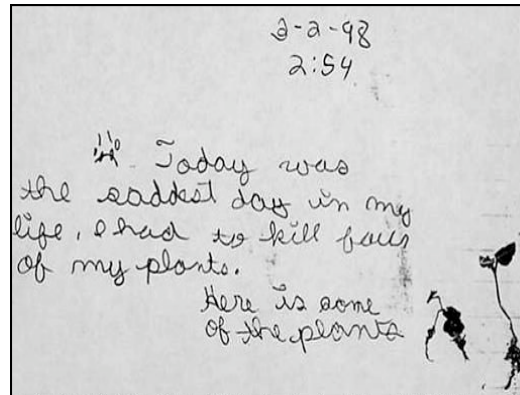 2-2-98
2:54
Today was
the saddest day in my
life, I had to kill four
of my plants.
Here is some
of the plants